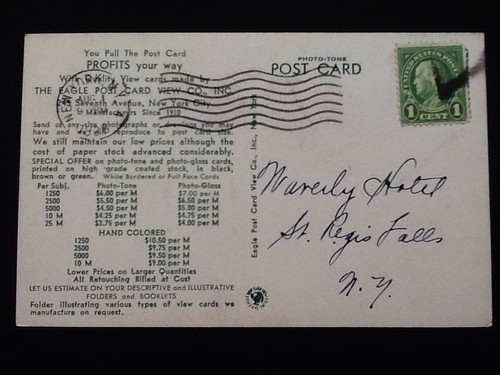 You Pull The Post Card
PROFITS your way
With Quality View cards made by
THE EAGLE POST CARD VIEW CO., INC.
Seventh Avenue, New York City
Manufacturers Since 1910
Send us any size photographs or drawings you may
have and we will reproduce to post card size.
We still maintain our low prices although the
cost of paper stock advanced considerably.
SPECIAL OFFER on photo-tone and photo-gloss cards,
printed on high grade coated stock, in black,
brown or green. White Bordered or Full Face Cards
Per Subj. Photo-Tone Photo-Gloss
1250 $6.00 per M $7.00 per M
2500 $5.50 per M $6.50 per M
5000 $4.50 per M $5.00 per M
10 M $4.25 per M $4.75 per M
25 M $3.75 per M $4.00 per M
HAND COLORED
1250 $10.50 per M
2500 $9.75 per M
5000 $9.50 per M
10 M $9.00 per M
Lower Prices on Larger Quantities
All Retouching Billed at Cost
LET US ESTIMATE ON YOUR DESCRIPTIVE and ILLUSTRATIVE
FOLDERS and BOOKLETS
Folder illustrating various types of view cards we
manufacture on request.
NEW YORK
Eagle Post Card View Co., Inc., New York
PHOTO-TONE
POST CARD
UNITED STATES POSTAGE
1 1
CENT
Waverly Hotel
St. Regis Falls
N.Y.